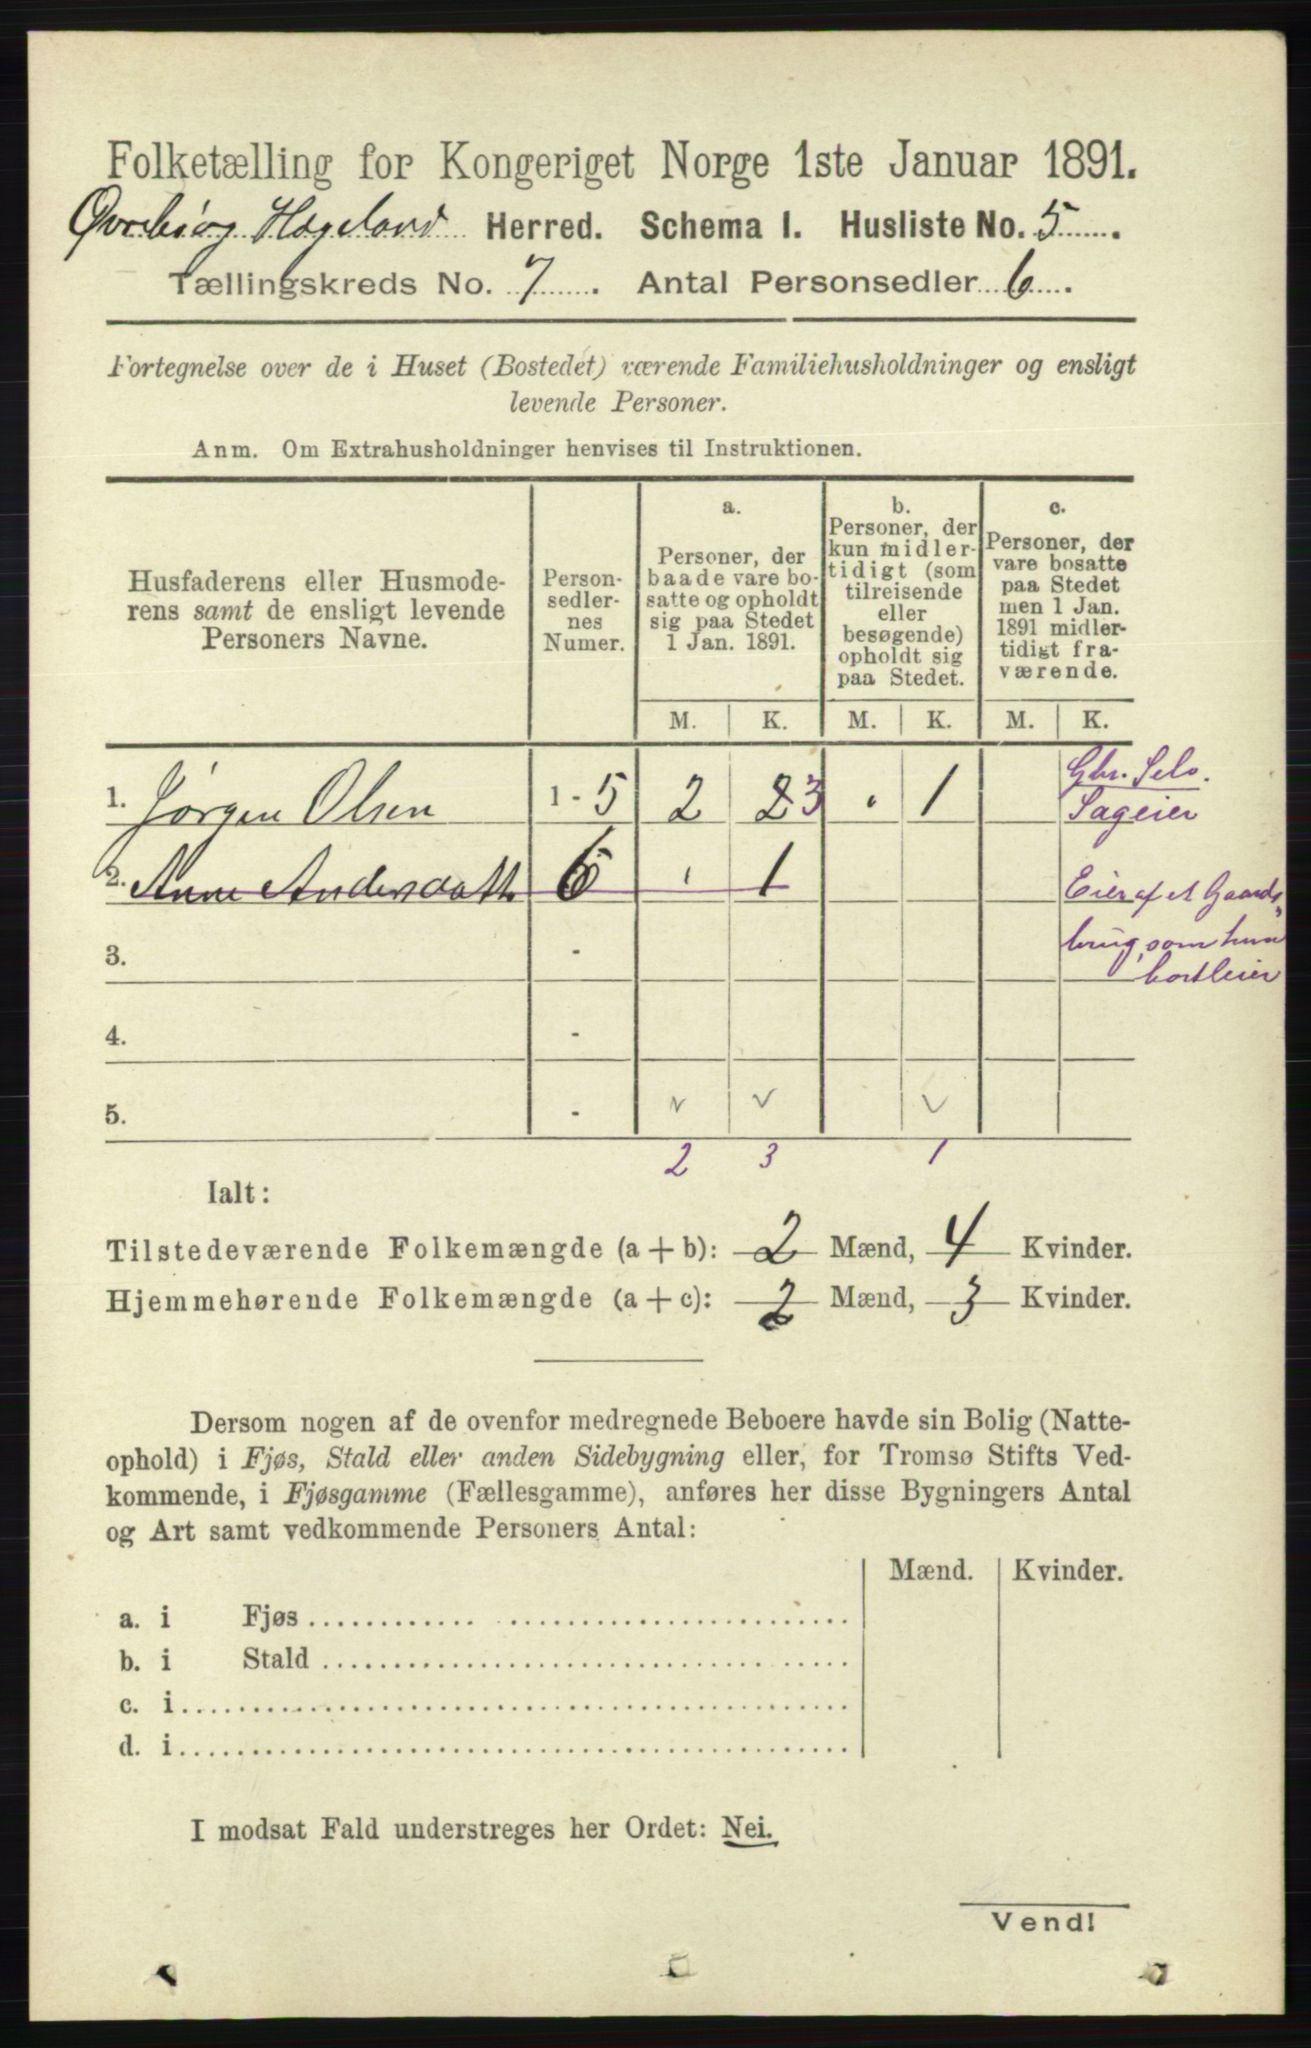 Folketælling for Kongeriget Norge 1ste Januar 1891.
Øvrebø og Hægeland Herred. Schema I. Husliste No. 5
Tællingskreds No. 7. Antal Personsedler 6.
Fortegnelse over de i Huset (Bostedet) værende Familiehusholdninger og ensligt
levende Personer.
Anm. Om Extrahusholdninger henvises til Instruktionen.
Husfaderens eller Husmode-
rens samt de ensligt levende
Personers Navne.
Person-
sedler-
nes
Numer.
a.
Personer, der
baade vare bo-
satte og opholdt
sig paa Stedet
1 Jan. 1891.
b.
Personer, der
kun midler-
tidigt (som
tilreisende
eller
besøgende)
opholdt sig
paa Stedet.
c.
Personer, der
vare bosatte
paa Stedet
men 1 Jan.
1891 midler-
tidigt fra-
værende.
M. K. M. K. M. K.
1. Jørgen Olsen 1 - 5 2 2 3 . 1 Gbr. Selv.
Sageier
2. Anne Andersdatt. 6 1 Eier af et Gaards
brug, som hun
bortleier
3. -
4. -
5. -
2 3 1
Ialt:
Tilstedeværende Folkemængde (a + b): 2 Mænd, 4 Kvinder.
Hjemmehørende Folkemængde (a + c): 2 Mænd, 3 Kvinder.
Dersom nogen af de ovenfor medregnede Beboere havde sin Bolig (Natte-
ophold) i Fjøs, Stald eller anden Sidebygning eller, for Tromsø Stifts Ved-
kommende, i Fjøsgamme (Fællesgamme), anføres her disse Bygningers Antal
og Art samt vedkommende Personers Antal:
Mænd. Kvinder.
a. i Fjøs
b. i Stald
c. i
d. i
I modsat Fald understreges her Ordet: Nei.
Vend!